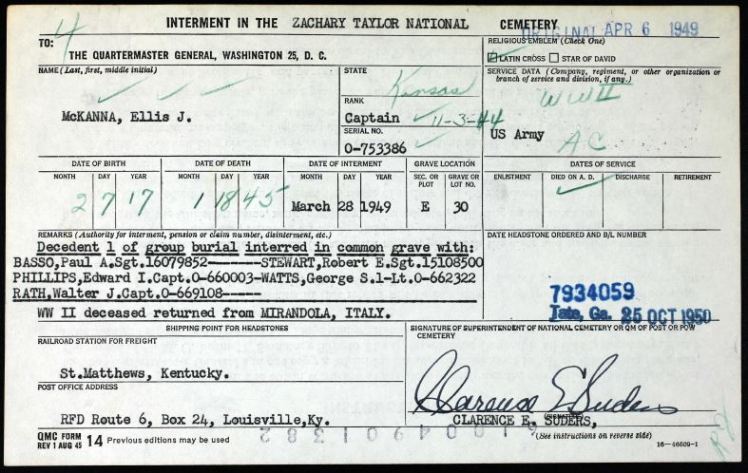 INTERMENT IN THE ZACHARY TAYLOR NATIONAL CEMETERY
ORIGINAL APR 6 1949
4
TO:
THE QUARTERMASTER GENERAL, WASHINGTON 25, D. C.
RELIGIOUS EMBLEM (Check One)
LATIN CROSS STAR OF DAVID
NAME (Last, first, middle initial)
McKANNA, Ellis J.
STATE
Kansas
RANK
Captain 11-3-44
SERIAL NO.
O-753386
SERVICE DATA (Company, regiment, or other organization or branch of service and division, if any.)
WWII
US Army AC
DATE OF BIRTH DATE OF DEATH DATE OF INTERMENT GRAVE LOCATION DATES OF SERVICE
MONTH DAY YEAR MONTH DAY YEAR MONTH DAY YEAR SEC. OR PLOT GRAVE OR LOT NO. ENLISTMENT DIED ON A. D. DISCHARGE RETIREMENT
2 7 17 1 18 45 March 28 1949 E 30
REMARKS (Authority for interment, pension or claim number, disinterment, etc.)
Decedent 1 of group burial interred in common grave with:
BASSO,Paul A.Sgt.16079852-------STEWART,Robert E.Sgt.15108500
PHILLIPS,Edward I.Capt.O-660003-WATTS,George S.1-Lt.O-662322
RATH,Walter J.Capt.O-669108------
WW II deceased returned from MIRANDOLA, ITALY.
DATE HEADSTONE ORDERED AND B/L NUMBER
7934059
Tate, Ga. 25 OCT 1950
SHIPPING POINT FOR HEADSTONES
RAILROAD STATION FOR FREIGHT
St.Matthews, Kentucky.
POST OFFICE ADDRESS
RFD Route 6, Box 24, Louisville,Ky.
SIGNATURE OF SUPERINTENDENT OF NATIONAL CEMETERY OR QM OF POST OR POW CEMETERY
Clarence E Suders
(SIGNATURE)
CLARENCE E. SUDERS,
(See instructions on reverse side)
QMC FORM
REV 1 AUG 45 14 Previous editions may be used
16—46609-1